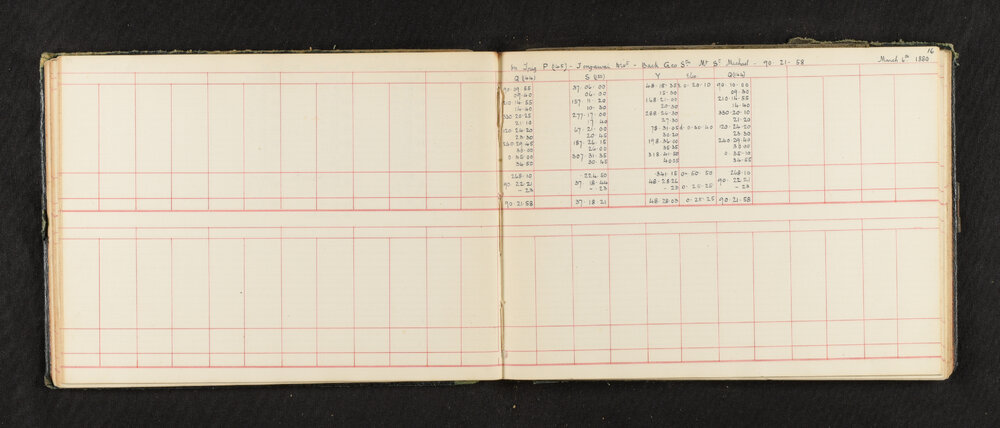 16
In Trig P (45) - Jongawai Stof - Back Geo Stn Mt St Michael - 90·21-58 March 6th 1880
Q (44) S (20) Y Q(44)
90·09·55 37·06·00 48·15·35 0·20·10 90·10·00
09·40 06·00 15·00 09·30
210·14·55 157·11·20 168·21·00 210·14·55
14·40 10·30 20·30 14·40
330·20·25 277·17·00 288·26·30 330·20·10
21·10 17·40 27·30 21·20
120·24·20 67·21·00 78·31·05 0·30·40 120·24·20
23·30 20·45 30·20 23·30
240·29·45 187·26·15 198·36·00 240·29·40
30·00 26·00 35·35 30·00
0·35·00 307·31·35 318·41·50 0·35·10
34·50 30·45 40·05 34·55
268·10 224·50 341·15 0·50·50 268·10
90·22·21 37·18·44 48·28·26 90·22·21
-23 -23 -23 0·25·25 -23
90·21·58 37·18·21 48·28·03 0·25·25 90·21·58